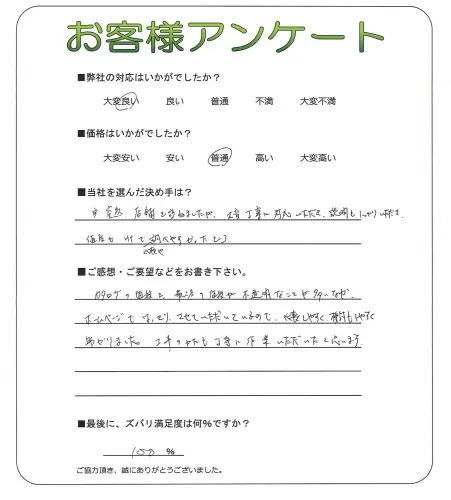 お客様アンケート
■弊社の対応はいかがでしたか？
大変良い 良い 普通 不満 大変不満
■価格はいかがでしたか？
大変安い 安い 普通 高い 大変高い
■当社を選んだ決め手は？
店舗を訪ねましたが、丁寧に対応いただき、説明もしっかりいただき、
価格も
■ご感想・ご要望などをお書き下さい。
カタログの価格と、実際の価格が不透明なことが多いなか、
ホームページではっきりさせていただいているので、検討もしやすく
助かりました。工事のかたも丁寧に作業いただいたと思います。
■最後に、ズバリ満足度は何％ですか？
100 ％
ご協力頂き、誠にありがとうございました。